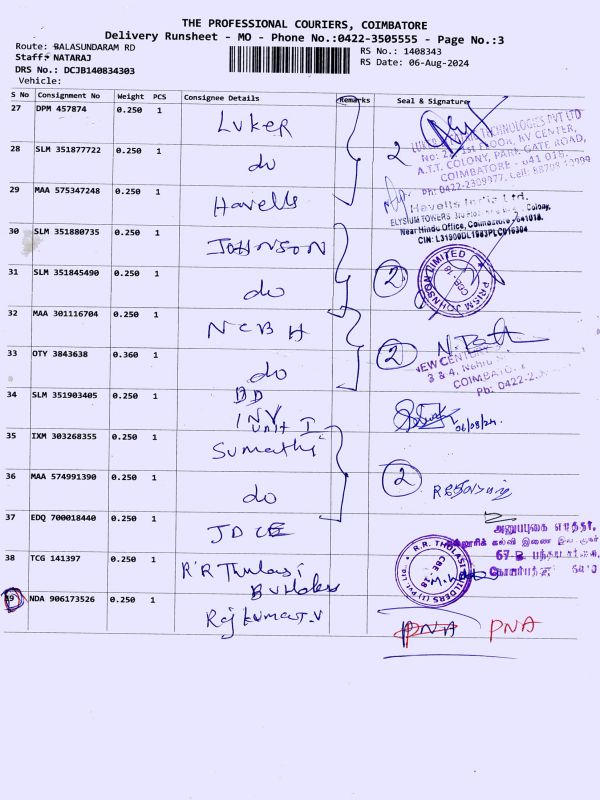 THE PROFESSIONAL COURIERS, COIMBATORE
Delivery Runsheet - MO - Phone No.:0422-3505555 - Page No.:3
Route: BALASUNDARAM RD
RS No.: 1408343
Staff: NATARAJ
RS Date: 06-Aug-2024
DRS No.: DCJB140834303
Vehicle:
S No Consignment No Weight PCS Consignee Details Remarks Seal & Signature
27 DPM 457874 0.250 1 Luker
28 SLM 351877722 0.250 1 do 2
TECHNOLOGIES PVT LTD
FLOOR, KV CENTER,
A.T.T. COLONY, PARK GATE ROAD,
COIMBATORE - 641 018.
29 MAA 575347248 0.250 1 Havells
Havells India Ltd.
ELYSIUM TOWERS Colony,
Near Hindu Office, Coimbatore - 641018.
CIN: L31900DL1983PLC016304
30 SLM 351880735 0.250 1 JOHNSON
31 SLM 351845490 0.250 1 do 2
PRISM JOHNSON LIMITED
CBE 18
32 MAA 301116704 0.250 1 NCBH
33 OTY 3843638 0.360 1 do 2
NEW CENTURY
COIMBATO
Ph: 0422-2
34 SLM 351903405 0.250 1 BD
INV
unit I
06/08/24
35 IXM 303268355 0.250 1 Sumathi
36 MAA 574991390 0.250 1 do 2
37 EDQ 700018440 0.250 1 JDCE
38 TCG 141397 0.250 1 R R Thulasi
Builders
R.R. THULASI BUILDERS (I) Pvt. Ltd.
CBE - 18
39 NDA 906173526 0.250 1 Rajkumar.V PNA PNA